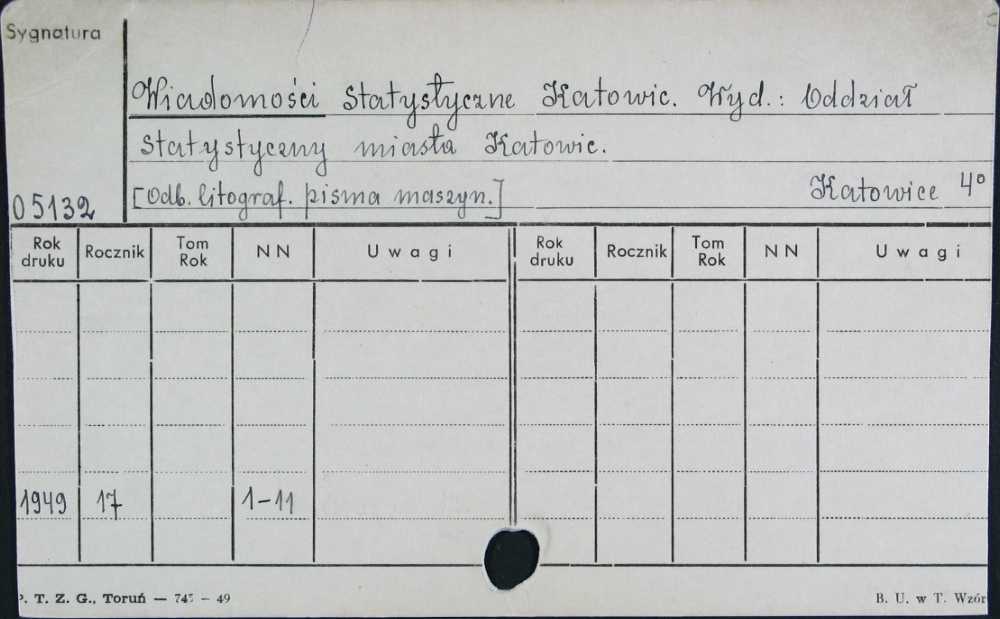 Sygnatura
Wiadomości Statystyczne Katowic. Wyd.: Oddział
Statystyczny miasta Katowic.
05132 [Odb. litograf. pisma maszyn.] Katowice 4°
Rok druku Rocznik Tom Rok NN Uwagi Rok druku Rocznik Tom Rok NN Uwagi
1949 17 1-11
P. T. Z. G., Toruń — 745 - 49 B. U. w T. Wzór